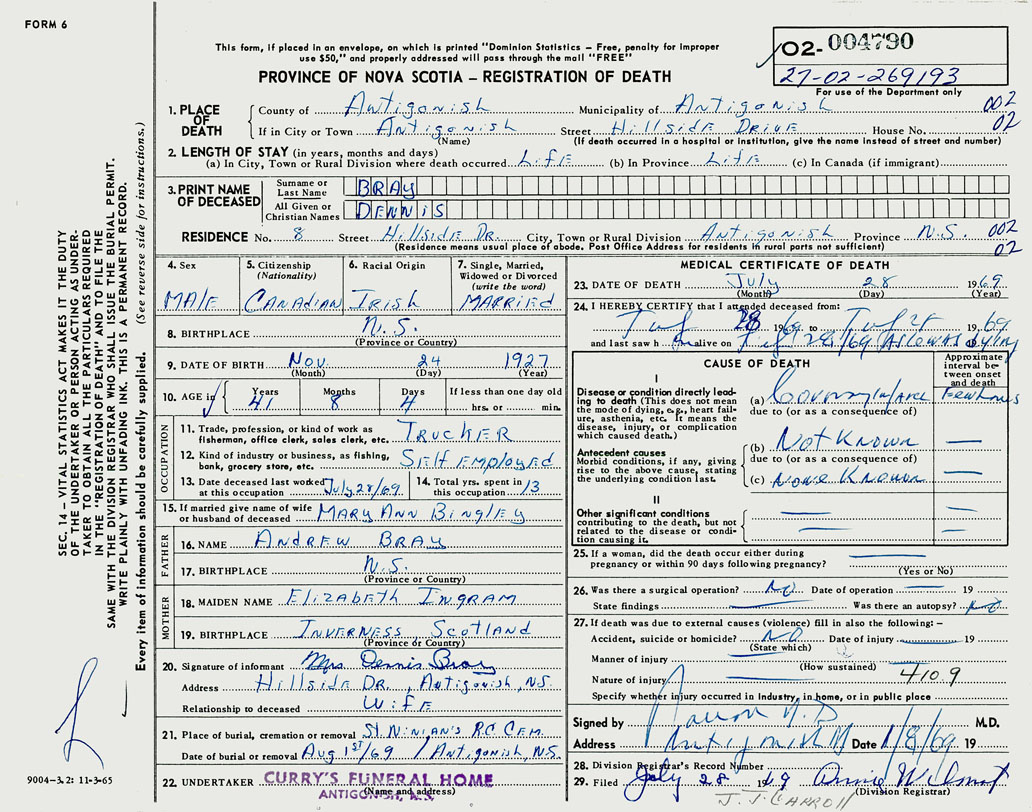 FORM 6
This form, if placed in an envelope, on which is printed "Dominion Statistics – Free, penalty for improper
use $50," and properly addressed will pass through the mail "FREE"
PROVINCE OF NOVA SCOTIA – REGISTRATION OF DEATH
02- 004790
27-02-269193
For use of the Department only
1. PLACE OF DEATH
County of Antigonish Municipality of Antigonish 002
If in City or Town Antigonish Street Hillside Drive House No. 02
(Name) (If death occurred in a hospital or institution, give the name instead of street and number)
2. LENGTH OF STAY (in years, months and days)
(a) In City, Town or Rural Division where death occurred Life (b) In Province Life (c) In Canada (if immigrant)
3. PRINT NAME OF DECEASED
Surname or Last Name BRAY
All Given or Christian Names DENNIS
RESIDENCE No. 8 Street Hillside Dr. City, Town or Rural Division Antigonish Province N.S. 002
(Residence means usual place of abode. Post Office Address for residents in rural parts not sufficient) 02
4. Sex
MALE
5. Citizenship (Nationality)
Canadian
6. Racial Origin
Irish
7. Single, Married, Widowed or Divorced (write the word)
MARRIED
8. BIRTHPLACE N.S.
(Province or Country)
9. DATE OF BIRTH Nov. 24 1927
(Month) (Day) (Year)
10. AGE in Years Months Days If less than one day old
41 8 4 hrs. or min.
OCCUPATION
11. Trade, profession, or kind of work as fisherman, office clerk, sales clerk, etc. TRUCKER
12. Kind of industry or business, as fishing, bank, grocery store, etc. Self Employed
13. Date deceased last worked at this occupation July 28/69
14. Total yrs. spent in this occupation 13
15. If married give name of wife or husband of deceased MARY ANN BINGLEY
FATHER
16. NAME ANDREW BRAY
17. BIRTHPLACE N.S.
(Province or Country)
MOTHER
18. MAIDEN NAME Elizabeth INGRAM
19. BIRTHPLACE Inverness Scotland
(Province or Country)
20. Signature of informant Mrs. Dennis Bray
Address Hillside DR., Antigonish, N.S.
Relationship to deceased Wife
21. Place of burial, cremation or removal St. Ninian's RC Cem.
Date of burial or removal Aug 1st/69 / Antigonish, N.S.
22. UNDERTAKER CURRY'S FUNERAL HOME
(Name and address)
ANTIGONISH, N.S.
MEDICAL CERTIFICATE OF DEATH
23. DATE OF DEATH July 28 1969
(Month) (Day) (Year)
24. I HEREBY CERTIFY that I attended deceased from:
28 1969 to 1969
and last saw h alive on 28/69
CAUSE OF DEATH
Approximate interval between onset and death
I
Disease or condition directly leading to death (This does not mean the mode of dying, e.g., heart failure, asthenia, etc. It means the disease, injury, or complication which caused death.)
(a) Few hours
due to (or as a consequence of)
Antecedent causes
Morbid conditions, if any, giving rise to the above cause, stating the underlying condition last.
(b) Not Known —
due to (or as a consequence of)
(c) None Known —
II
Other significant conditions
contributing to the death, but not related to the disease or condition causing it.
25. If a woman, did the death occur either during pregnancy or within 90 days following pregnancy? —
(Yes or No)
26. Was there a surgical operation? No Date of operation — 19
State findings — Was there an autopsy? No
27. If death was due to external causes (violence) fill in also the following: –
Accident, suicide or homicide? NO Date of injury — 19
(State which)
Manner of injury —
(How sustained)
Nature of injury — 4109
Specify whether injury occurred in industry, in home, or in public place
Signed by M.D.
Address Antigonish Date 1/8/69 19
28. Division Registrar's Record Number
29. Filed July 28 1969
(Division Registrar)
J. J. CARROLL
SEC. 14 – VITAL STATISTICS ACT MAKES IT THE DUTY
OF THE UNDERTAKER OR PERSON ACTING AS UNDER-
TAKER TO OBTAIN ALL THE PARTICULARS REQUIRED
IN THE "REGISTRATION OF DEATH" AND TO FILE THE
SAME WITH THE DIVISION REGISTRAR WHO SHALL ISSUE THE BURIAL PERMIT.
WRITE PLAINLY WITH UNFADING INK. THIS IS A PERMANENT RECORD.
Every item of information should be carefully supplied. (See reverse side for instructions.)
9004-3.2: 11-3-65